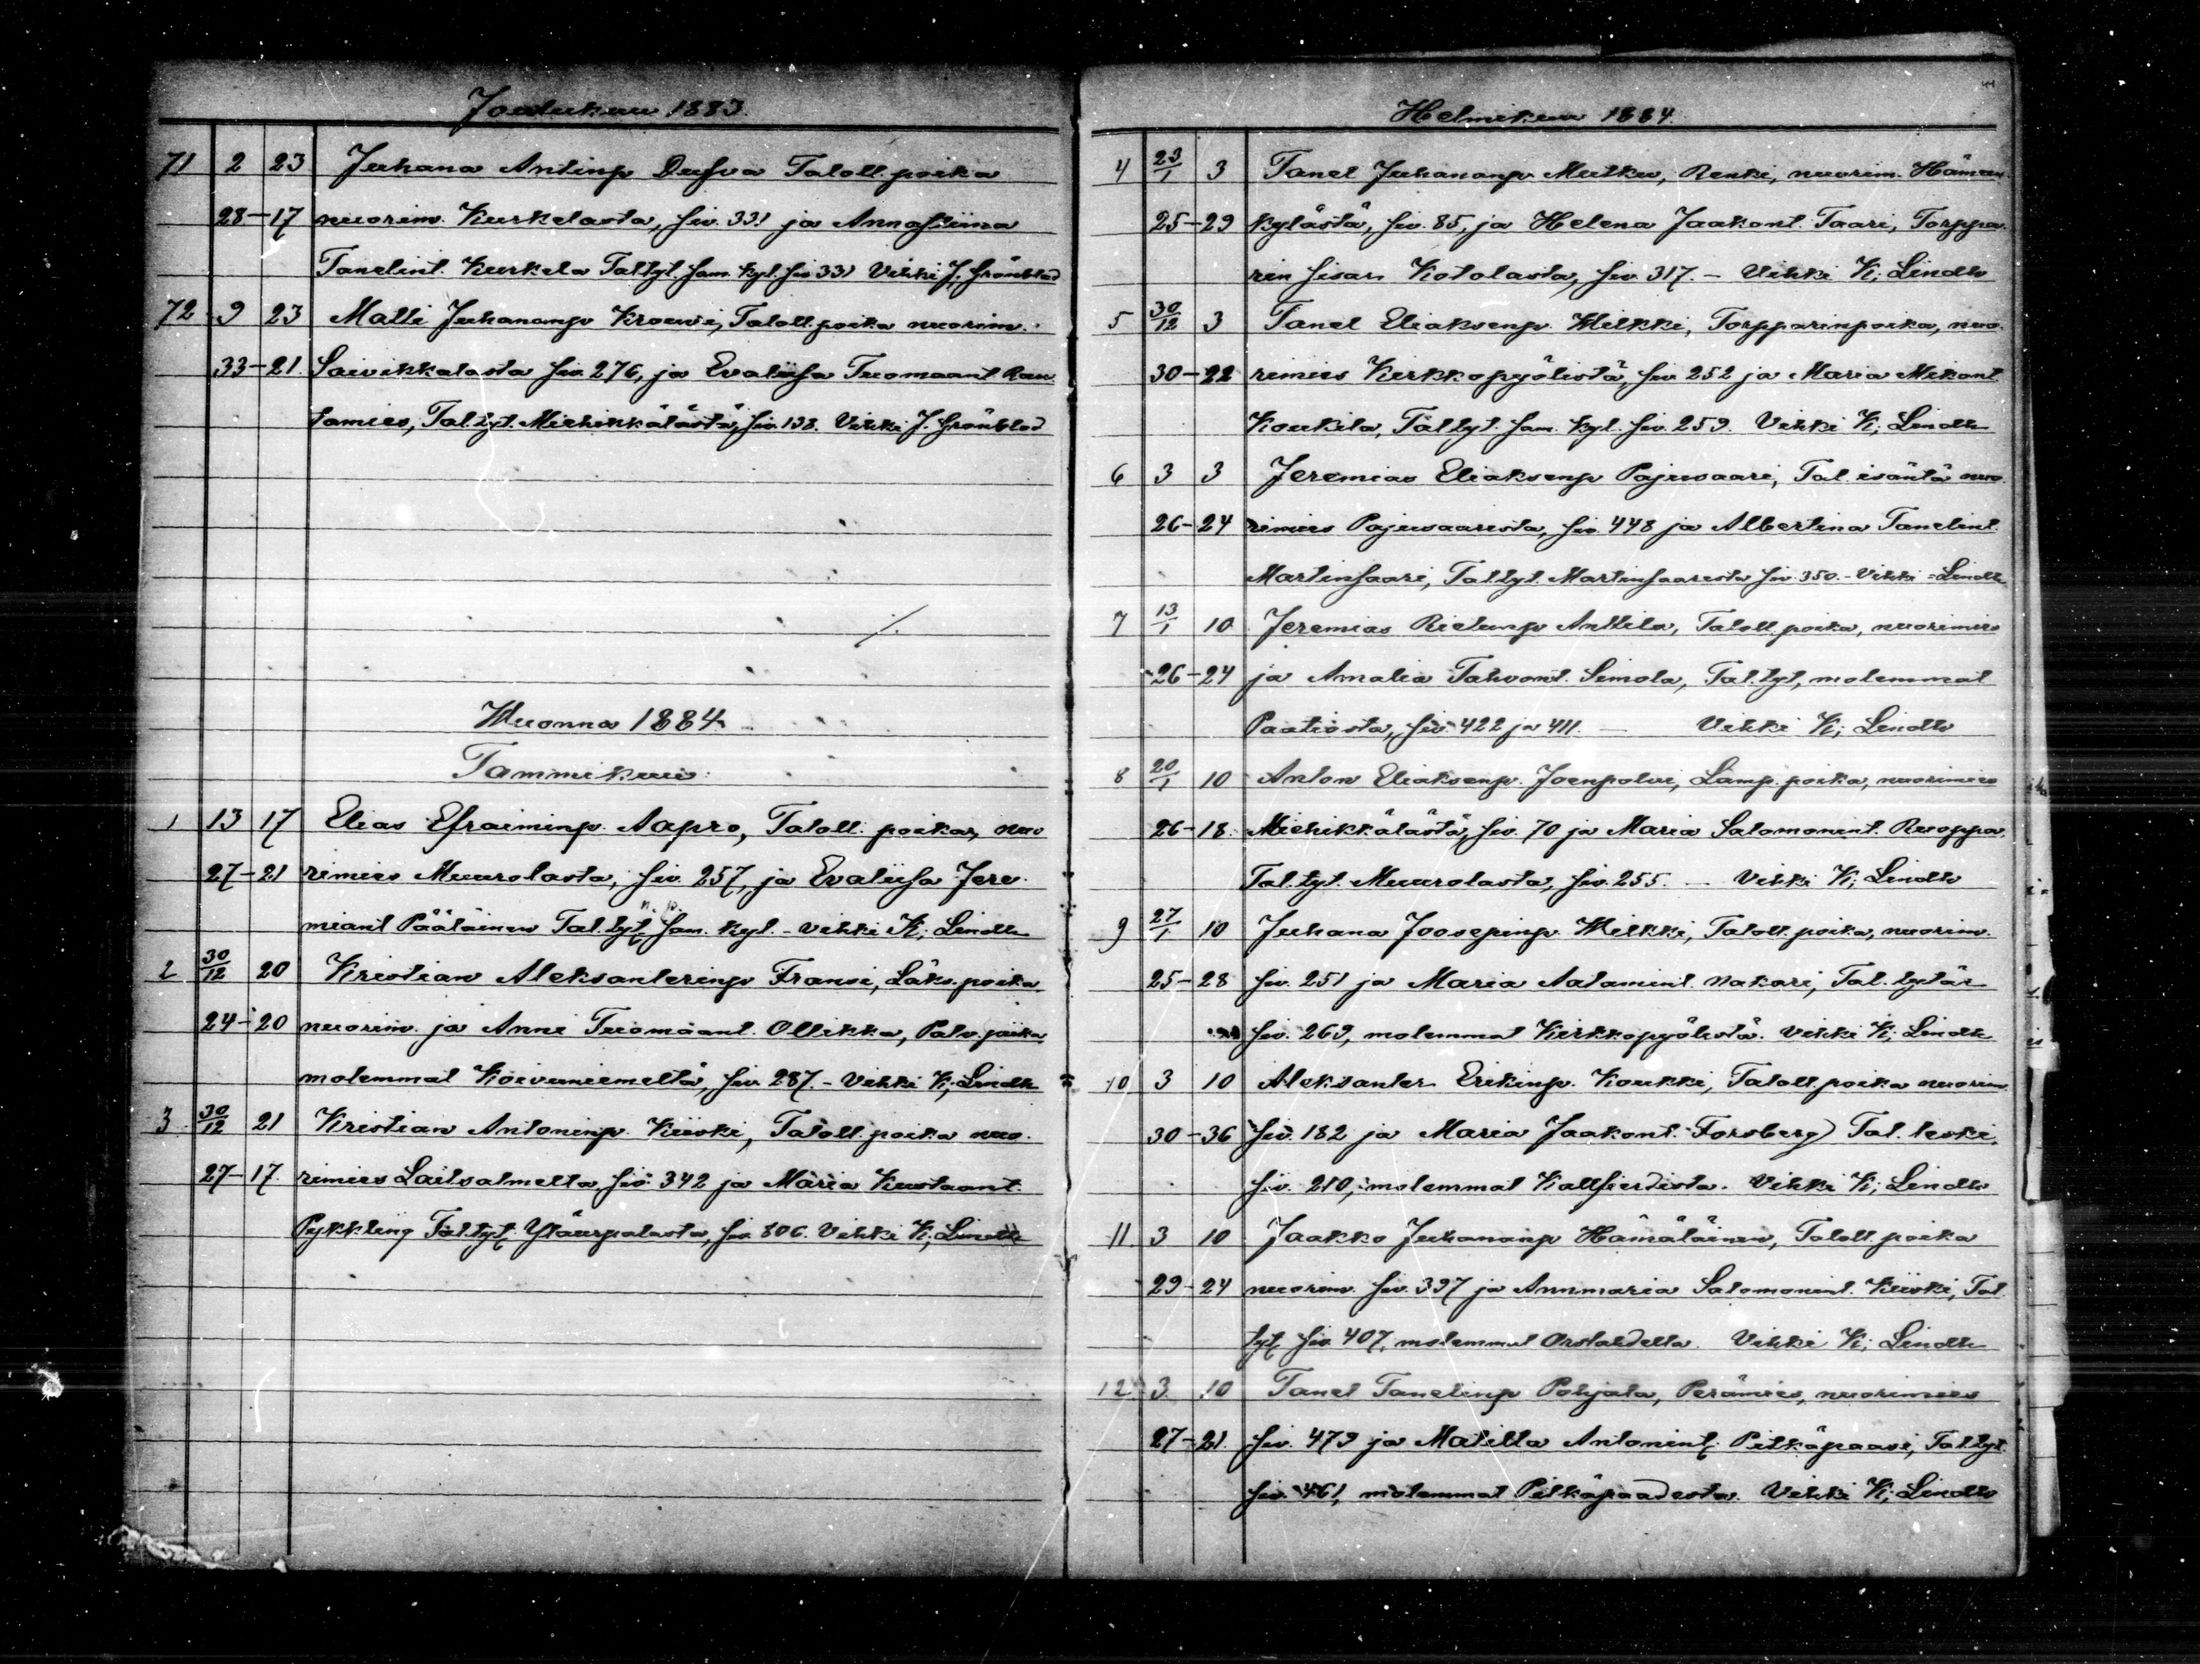 Joulukuu 1883.
71 2 23 Juhana Antinp. Dufva Taloll. poika
28-17 nuorim. Kurkelasta, siv. 331 ja Annastiina
Tanelint. Kurkela Tal.tyt. sam. kyl. siv 331 Vihki J. Grönblad
72 9 23 Matti Juhananp. Kroewi, Taloll. poika nuorim.
33-21. Soivikkalasta siv. 276, ja Evaliisa Tuomaant Ran
tamies, Tal.tyt. Miehikkälästä, siv. 138. Vihki J. Grönblad
Wuonna 1884
Tammikuu:
1 13 17 Elias Efraiminp. Aapro, Taloll. poika, nuo
27-21 rimies Muurolasta, siv. 257, ja Evaliisa Jere
miant Pääläinen Tal.tyt. n. p. sam. kyl. - Vihki K; Lindh
2 30/12 20 Kristian Aleksanterinp. Fransi, Läks. poika
24-20 nuorim. ja Anni Tuomaant. Ollikka, Palv. piika,
molemmat Koivuniemeltä, siv. 287. - Vihki K; Lindh
3. 30/12 21 Kristian Antoninp. Kiiski, Taloll. poika nuo.
27-17. rimies Laitsalmelta, siv. 342 ja Maria Kustaant.
Pykkling Tal.tyt. Yläurpalasta, siv. 806. Vihki K; Lindh
Helmikuu 1884.
4 23/1 3 Tanel Juhananp. Mutku, Renki, nuorim. Hämeen
25-29 kylästä, siv. 85, ja Helena Jaakont. Taari, Torppa.
rin sisar. Kotolasta, siv. 317. - Vihki K; Lindh
5 30/12 3 Tanel Eliaksenp. Wilkki, Torpparinpoika, nuo.
30-22 rimies Kirkkopyölistä, siv 252 ja Maria Mikont.
Koukila, Tal.tyt. sam. kyl. siv. 259. Vihki K; Lindh
6 3 3 Jeremias Eliaksenp Pajusaari, Tal. isäntä nuo.
26-24 rimies Pajusaaresta, siv. 448 ja Albertina Tanelint.
Martinsaari, Tal.tyt. Martinsaaresta siv. 350. - Vihki = Lindh
7 13/1 10 Jeremias Rietunp Anttila, Taloll. poika, nuorimies
26-24 ja Amalia Tahvont. Simola, Tal. tyt, molemmat
Paatiosta, siv. 422 ja 411. - Vihki K; Lindh
8 20/1 10 Anton Eliaksenp. Joenpolvi, Lamp. poika, nuorimies
26-18. Miehikkälästä, siv. 70 ja Maria Salomonint. Ruoppa,
Tal. tyt. Muurolasta, siv. 255. - Vihki K; Lindh
9 27/1 10 Juhana Joosepinp. Wilkki, Taloll. poika, nuorim.
25-28 siv. 251 ja Maria Aatamint. Nakari, Tal. tytär
siv. 269, molemmat Kirkkopyölistä. Vihki K; Lindh
10 3 10 Aleksanter Erikinp. Koukki, Taloll. poika nuorim.
30-36 siv. 182 ja Maria Jaakont. Forsberg) Tal. leski,
siv. 210, molemmat Kallfierdista. Vihki K; Lindh
11. 3 10 Jaakko Juhananp Hämäläinen, Taloll. poika
29-24 nuorim. siv. 397 ja Annmaria Salomonint. Kiiski, Tal
tyt, siv. 407, molemmat Orslahdelta. Vihki K; Lindh
12 3. 10 Tanel Tanelinp Pohjala, Perämies, nuorimies
27-21. siv. 479 ja Matilta Antonint. Pitkäpaasi, Tal.tyt.
siv. 461, molemmat Pitkäpaadesta. Vihki K; Lindh